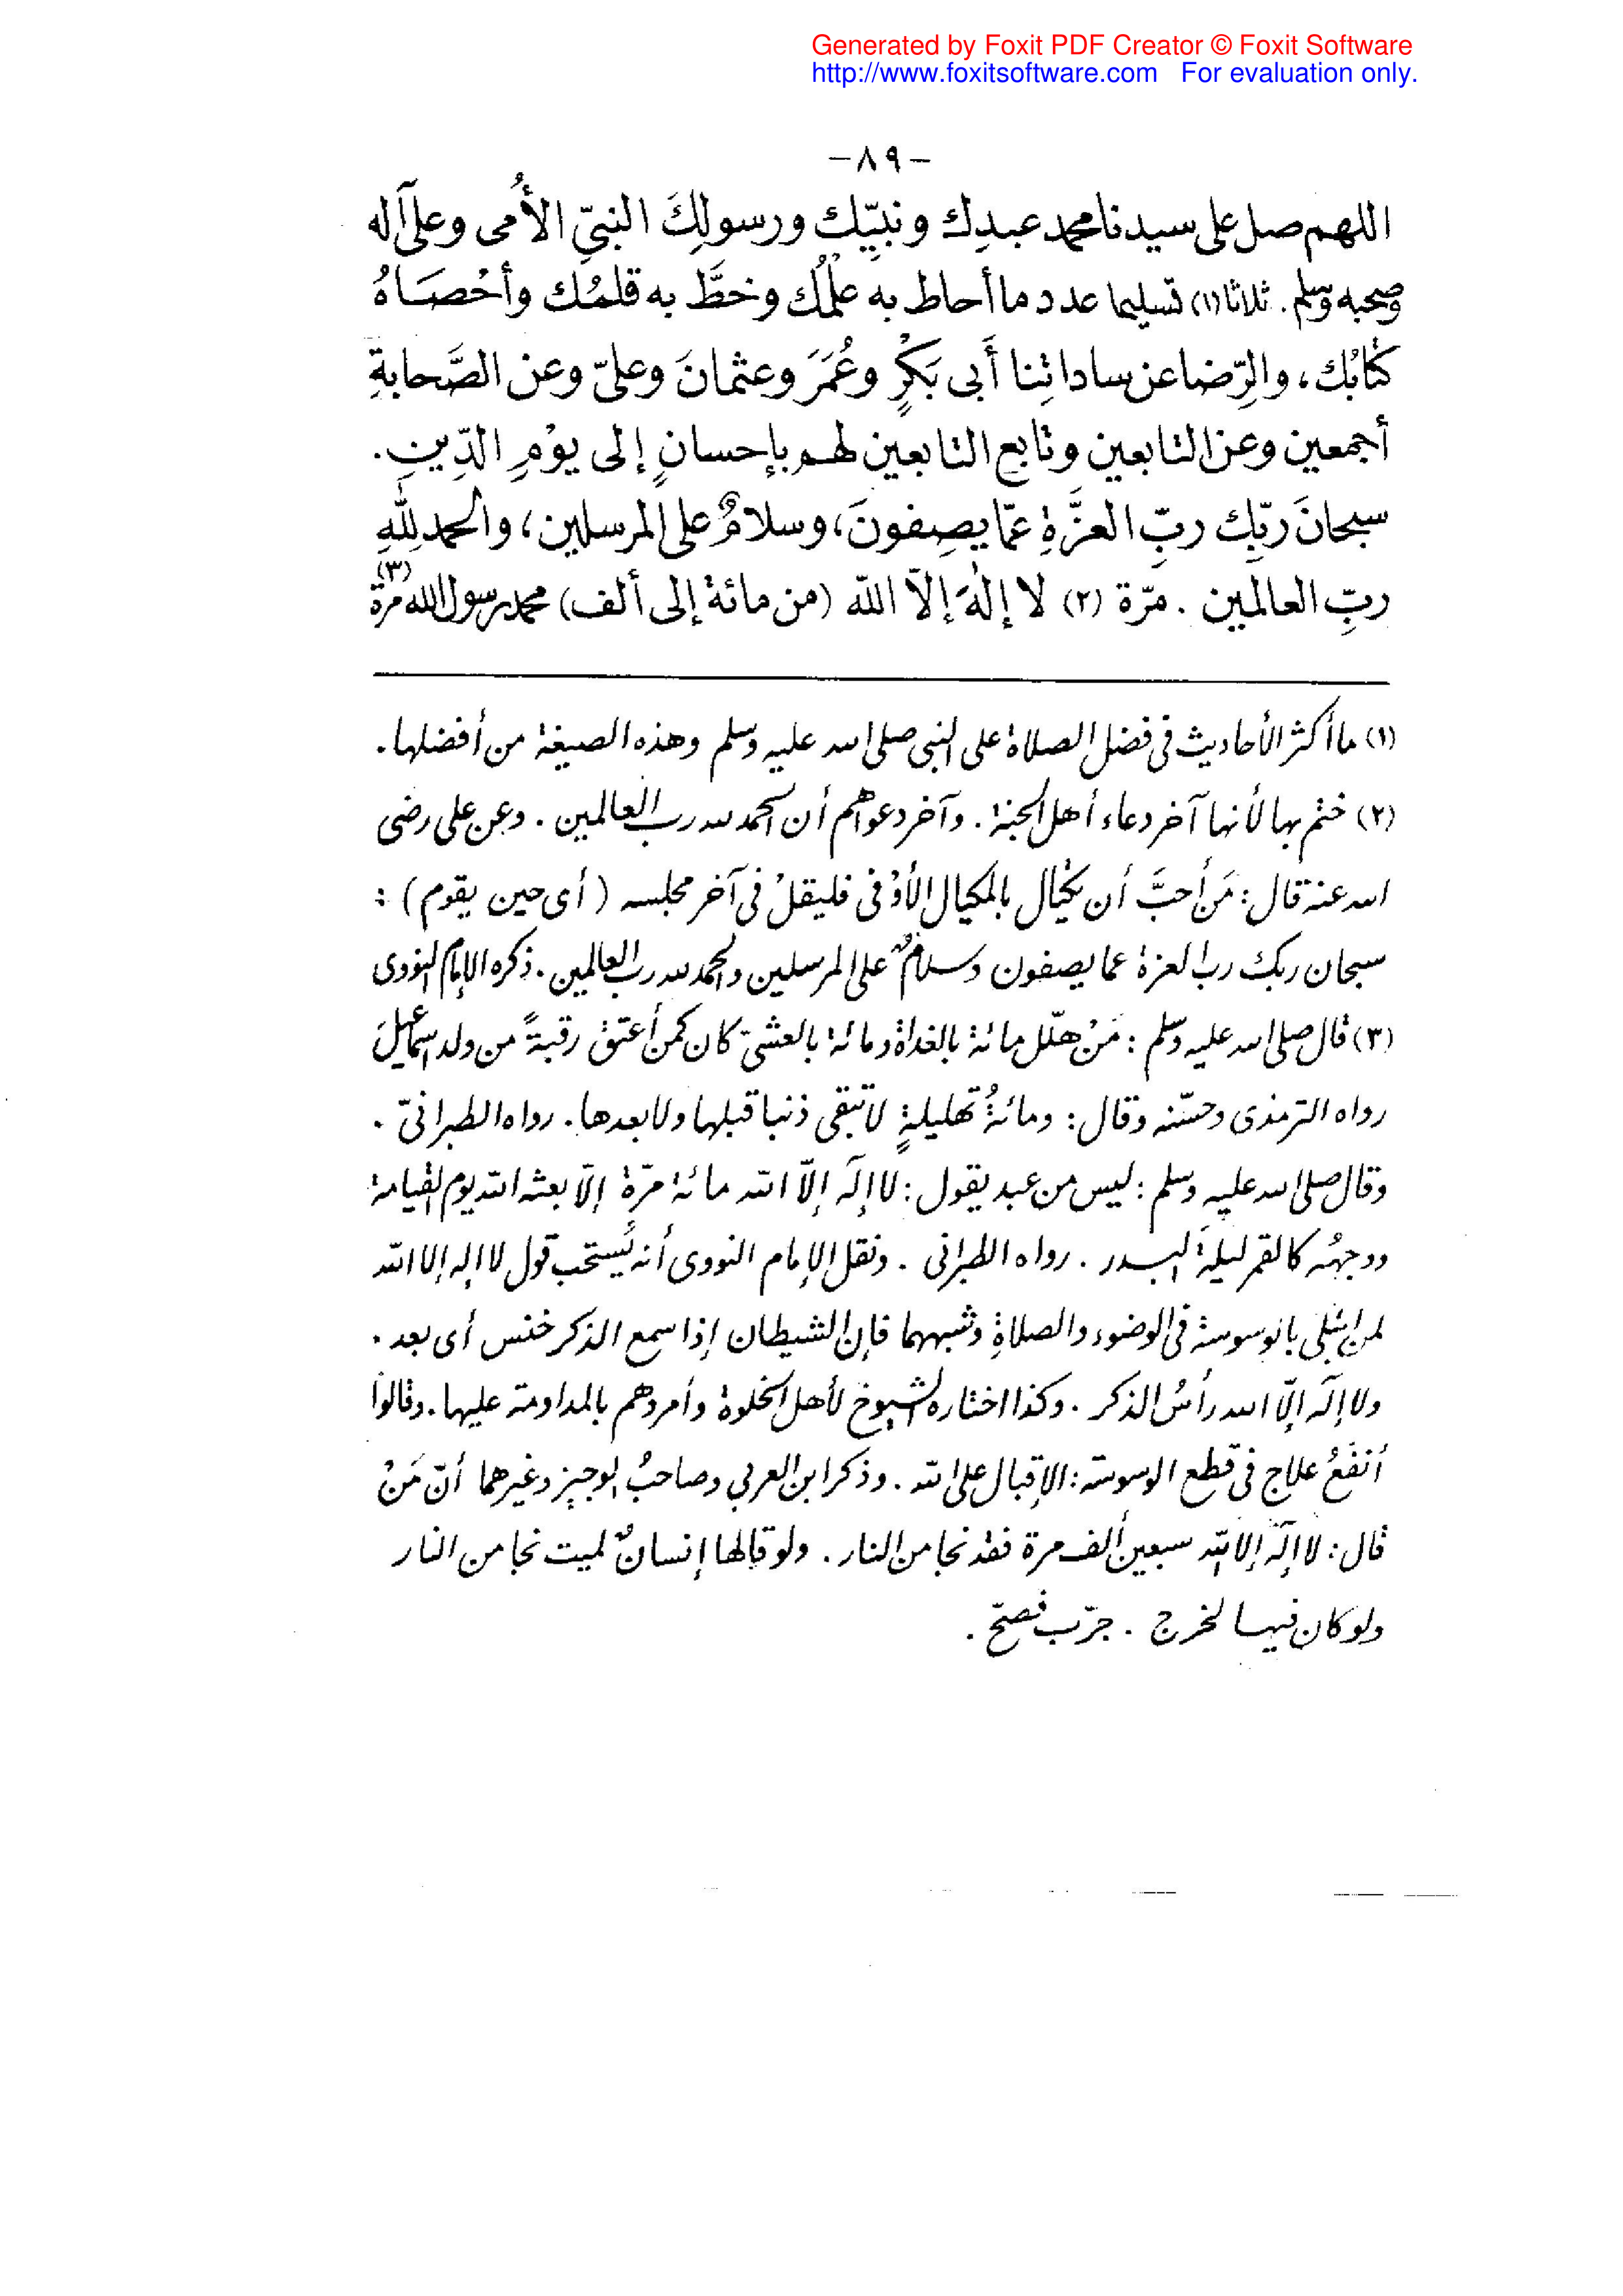 Generated by Foxit PDF Creator © Foxit Software
http://www.foxitsoftware.com For evaluation only.
-٨٩-
اللهم صل على سيدنا محمد عبدِك ونبيِّك ورسولِكَ النبيِّ الأُمى وعلى آله
وصحبه وسلم . ثلاثا (١) تسليما عدد ما أحاط به عِلْمُك وخطَّ به قلمُك وأحْصَاهُ
كتابُك، والرِّضا عن ساداتِنا أَبى بَكْرٍ وعُمَرَ وعثمانَ وعلىّ وعن الصَّحابةِ
أجمعين وعن التابعين وتابع التابعين لهم بإحسانٍ إلى يوْمِ الدِّينِ .
سبحانَ ربِّك ربِّ العزَّةِ عمّا يصِفونَ، وسلامٌ على المرسلين، والحمد لِلّٰهِ
ربِّ العالمين . مرّة (٢) لا إلٰهَ إلاّ اللّه (من مائة إلى ألف) محمد رسول الله مرة (٣)
(١) ما أكثر الأحاديث فى فضل الصلاة على النبى صلى الله عليه وسلم وهذه الصيغة من أفضلها .
(٢) ختم بها لأنها آخر دعاء أهل الجنة . وآخر دعواهم أن الحمد لله رب العالمين . وعن على رضى
الله عنه قال : مَن أحبَّ أن يكتال بالمكيال الأوْفى فليقلْ فى آخر مجلسه ( أى حين يقوم ) :
سبحان ربك رب العزة عما يصفون وسلامٌ على المرسلين والحمد لله رب العالمين . ذكره الإمام النووى
(٣) قال صلى الله عليه وسلم : مَنْ هلّل مائة بالغداة ومائة بالعشىّ كان كمن أعتق رقبةً من ولد اسماعيلَ
رواه الترمذى وحسّنه وقال : ومائةُ تهليلةٍ لا تبقى ذنبا قبلها ولا بعدها . رواه الطبرانىّ .
وقال صلى الله عليه وسلم : ليس من عبد يقول : لا إلٰه إلاّ اللّه مائة مرّة إلاّ بعثه اللّه يوم القيامة
ووجهُه كالقمر ليلةَ البدر . رواه الطبرانى . ونقل الإمام النووى أنه يُستحب قول لا إله إلا اللّه
لمن ابتلى بالوسوسة فى الوضوء والصلاةِ وشبههما فإن الشيطان إذا سمع الذكر خنس أى بعد .
ولا إلٰه إلاّ الله رأسُ الذكر . وكذا اختاره الشيوخ لأهل الخلوة وأمروهم بالمداومة عليها . وقالوا
أنفعُ علاج فى قطع الوسوسة : الإقبال على اللّه . وذكر ابن العربي وصاحبُ الوجيز وغيرهما أنّ مَنْ
قال : لا إلٰه إلا اللّه سبعين ألف مرة فقد نجا من النار . ولو قالها إنسانٌ لميت نجا من النار
ولو كان فيها لخرج . جرّب فصحّ .